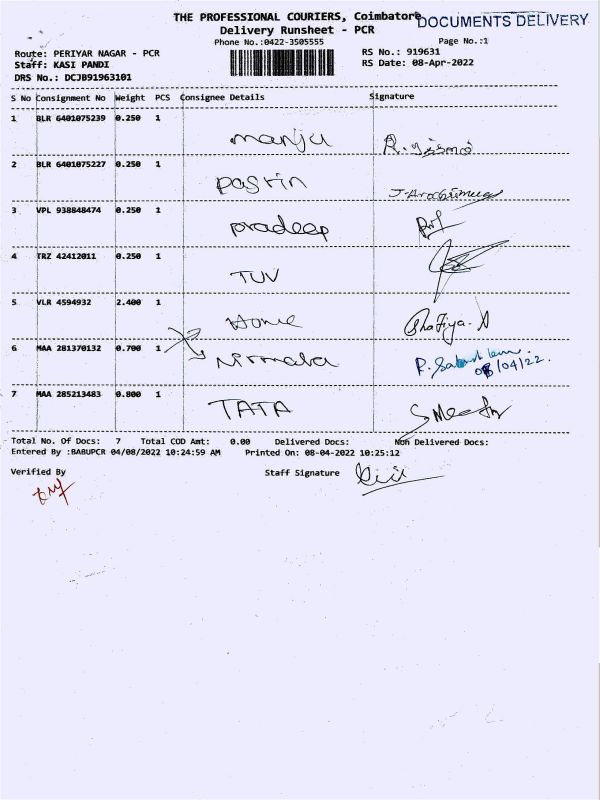 THE PROFESSIONAL COURIERS, Coimbatore
DOCUMENTS DELIVERY
Delivery Runsheet - PCR
Phone No.:0422-3505555 Page No.:1
Route: PERIYAR NAGAR - PCR RS No.: 919631
Staff: KASI PANDI RS Date: 08-Apr-2022
DRS No.: DCJB91963101
S No Consignment No Weight PCS Consignee Details Signature
1 BLR 6401075239 0.250 1 manju
2 BLR 6401075227 0.250 1
3 VPL 938848474 0.250 1 pradeep
4 TRZ 42412011 0.250 1 TUV
5 VLR 4594932 2.400 1 Home Shafiya. A
6 MAA 281370132 0.700 1 Nirmala 08/04/22.
7 MAA 285213483 0.800 1 TATA
Total No. Of Docs: 7 Total COD Amt: 0.00 Delivered Docs: Non Delivered Docs:
Entered By :BABUPCR 04/08/2022 10:24:59 AM Printed On: 08-04-2022 10:25:12
Verified By Staff Signature